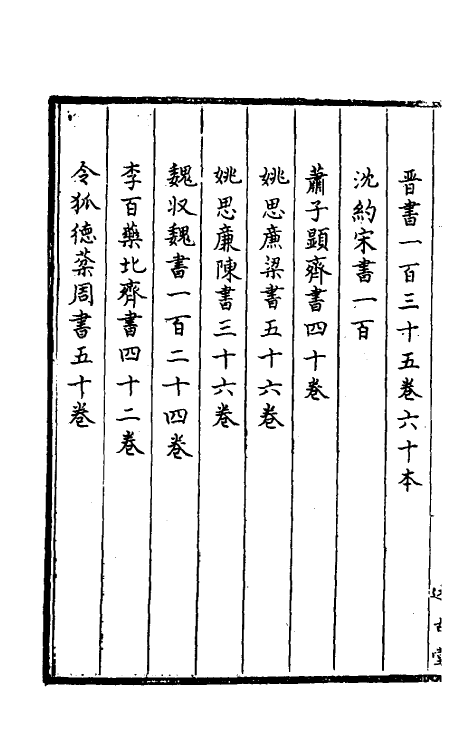 晋書一百三十五卷六十本
沈約宋書一百
蕭子顕齊書四十卷
姚思廉梁書五十六卷
姚思廉陳書三十六卷
魏収魏書一百二十四卷
李百藥北齊書四十二卷
令狐德棻周書五十卷